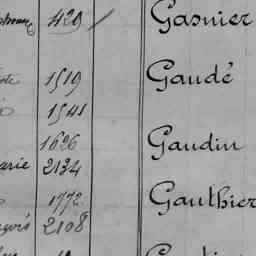 429 Gasnier
1519 Gaudé
1541
1626 Gaudin
arie 2134
1772 Gauthier
2108